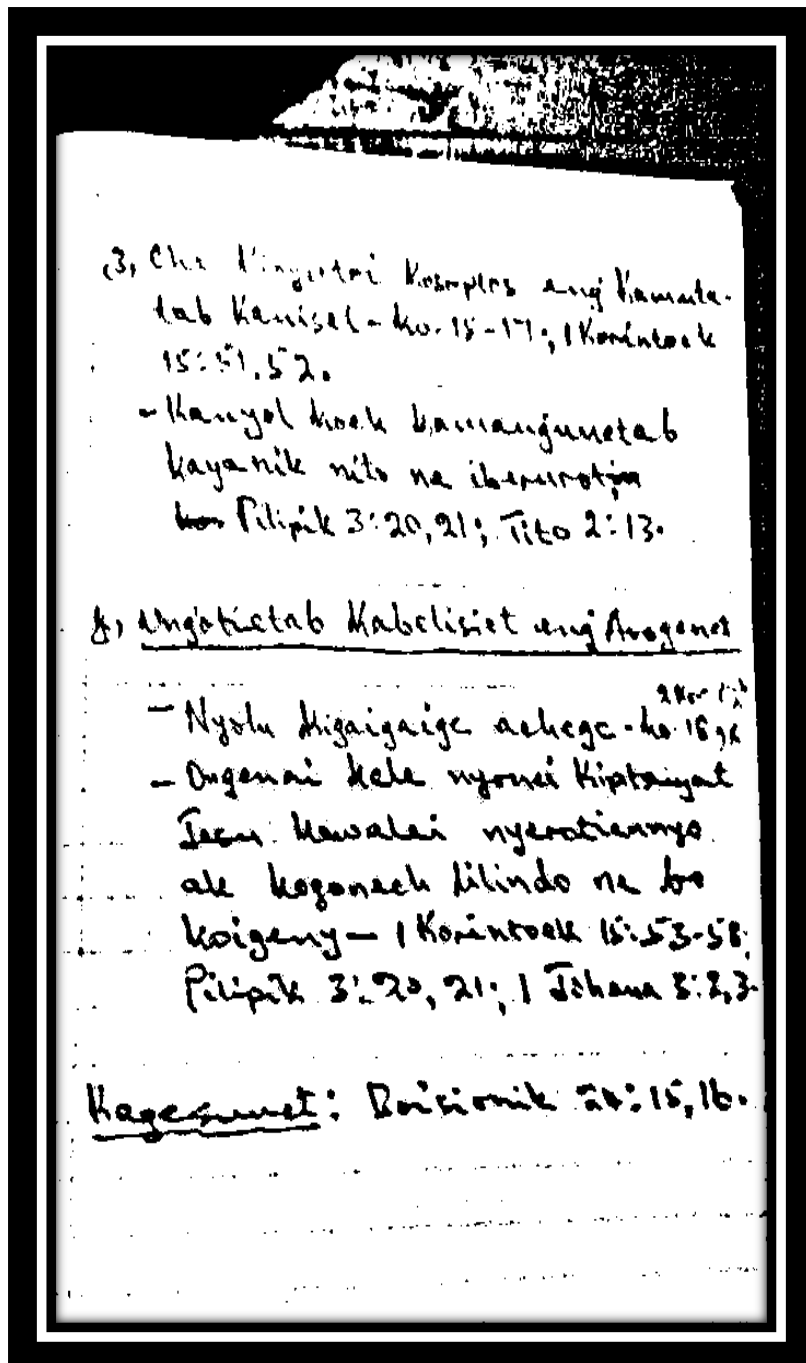 3, Che Kosoptos eng' Kamuta-
tab Kanisel - ko. 15-17; 1 Korintoek
15:51,52.
- Kanyol koek kamang'unetab
kayanik nito na iberurotin
Pilipik 3:20,21; Tito 2:13.
Kabelisiet eng' Arogenet
- Nyolu kigaigaige achege - ko. 18,
- Ongenai kele nyonei Kiptaiyat
Jesu kowalei nyerotiennyo
ale kogonech bilindo ne bo
koigeny - 1 Korintoek 15:53-58;
Pilipik 3:20, 21; 1 Johana 3:2,3.
Kagesunet: Boisionik 24:15,16.